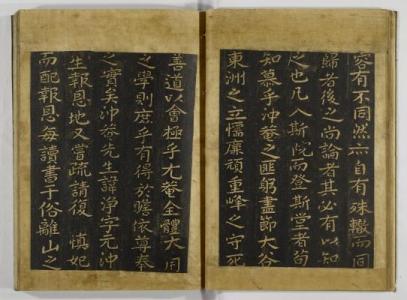 容有不同然亦自有殊轍而同
歸者後之尚論者其必有以知
之也凡入斯院而登斯堂者苟
知慕乎冲菴之匪躬盡節大谷
東洲之立懦廉頑重峰之守死
善道以會極乎尤菴全體大用
之學則庶乎有得於瞻依尊奉
之實矣冲菴先生諱淨字元冲
生報恩地又嘗疏請復 愼妃
而配報恩每讀書于俗離山之